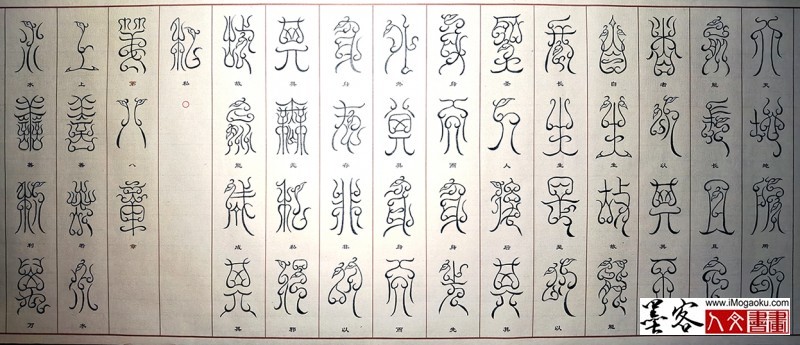 天地所以
能長且久
者以其不
自生故能
長生是以
圣人后其
身而身先
外其身而
身存非以
其无私邪
故能成其
私
第八章
上善若水
水善利万
墨客
www.iMogaoku.com
人文書畫